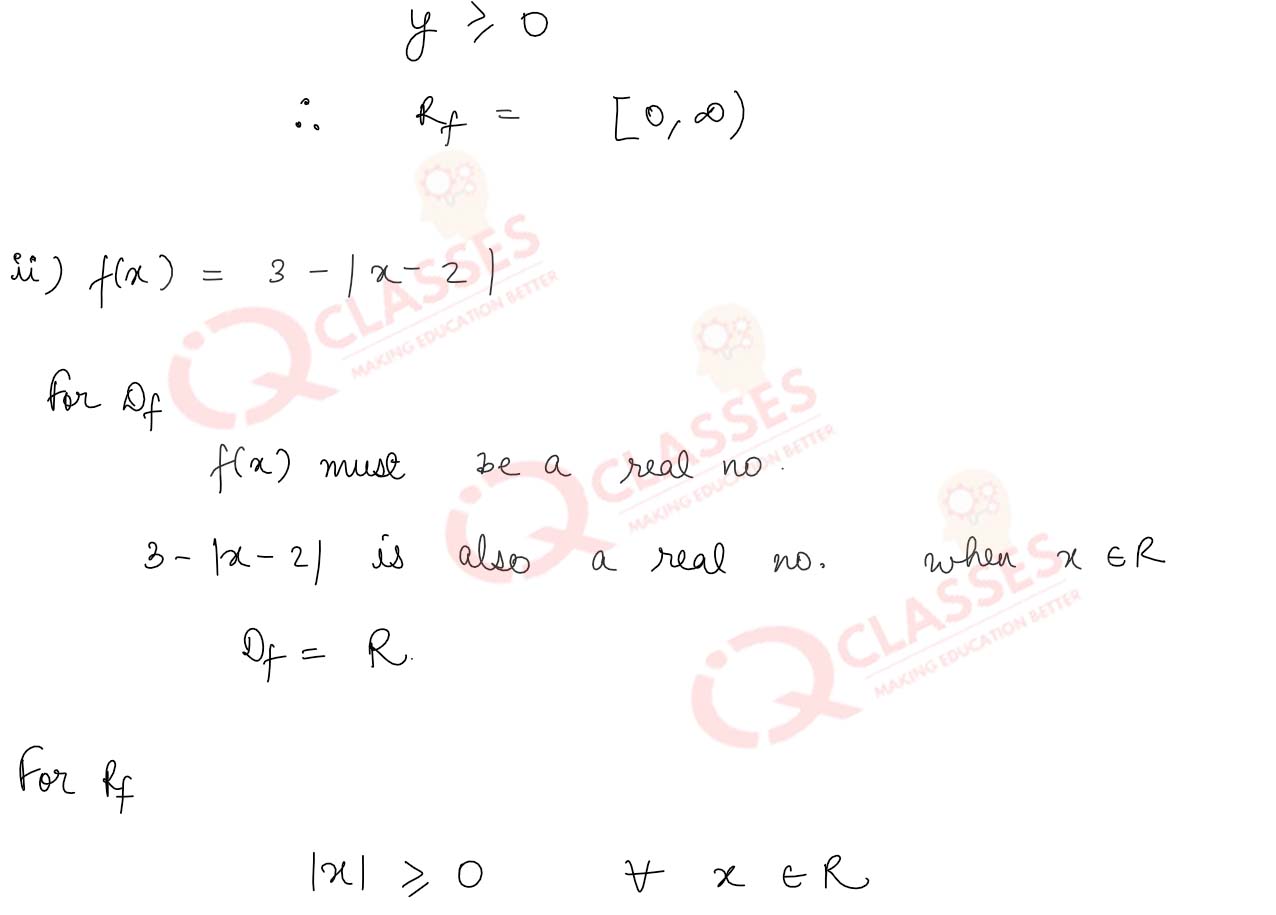 y ⩾ 0
∴ Rf = [0, ∞)
ii) f(x) = 3 - |x - 2|
For Df
f(x) must be a real no.
3 - |x - 2| is also a real no. when x ∈ R
Df = R.
For Rf
|x| ⩾ 0 ∀ x ∈ R
iQ CLASSES
MAKING EDUCATION BETTER
iQ CLASSES
MAKING EDUCATION BETTER
iQ CLASSES
MAKING EDUCATION BETTER